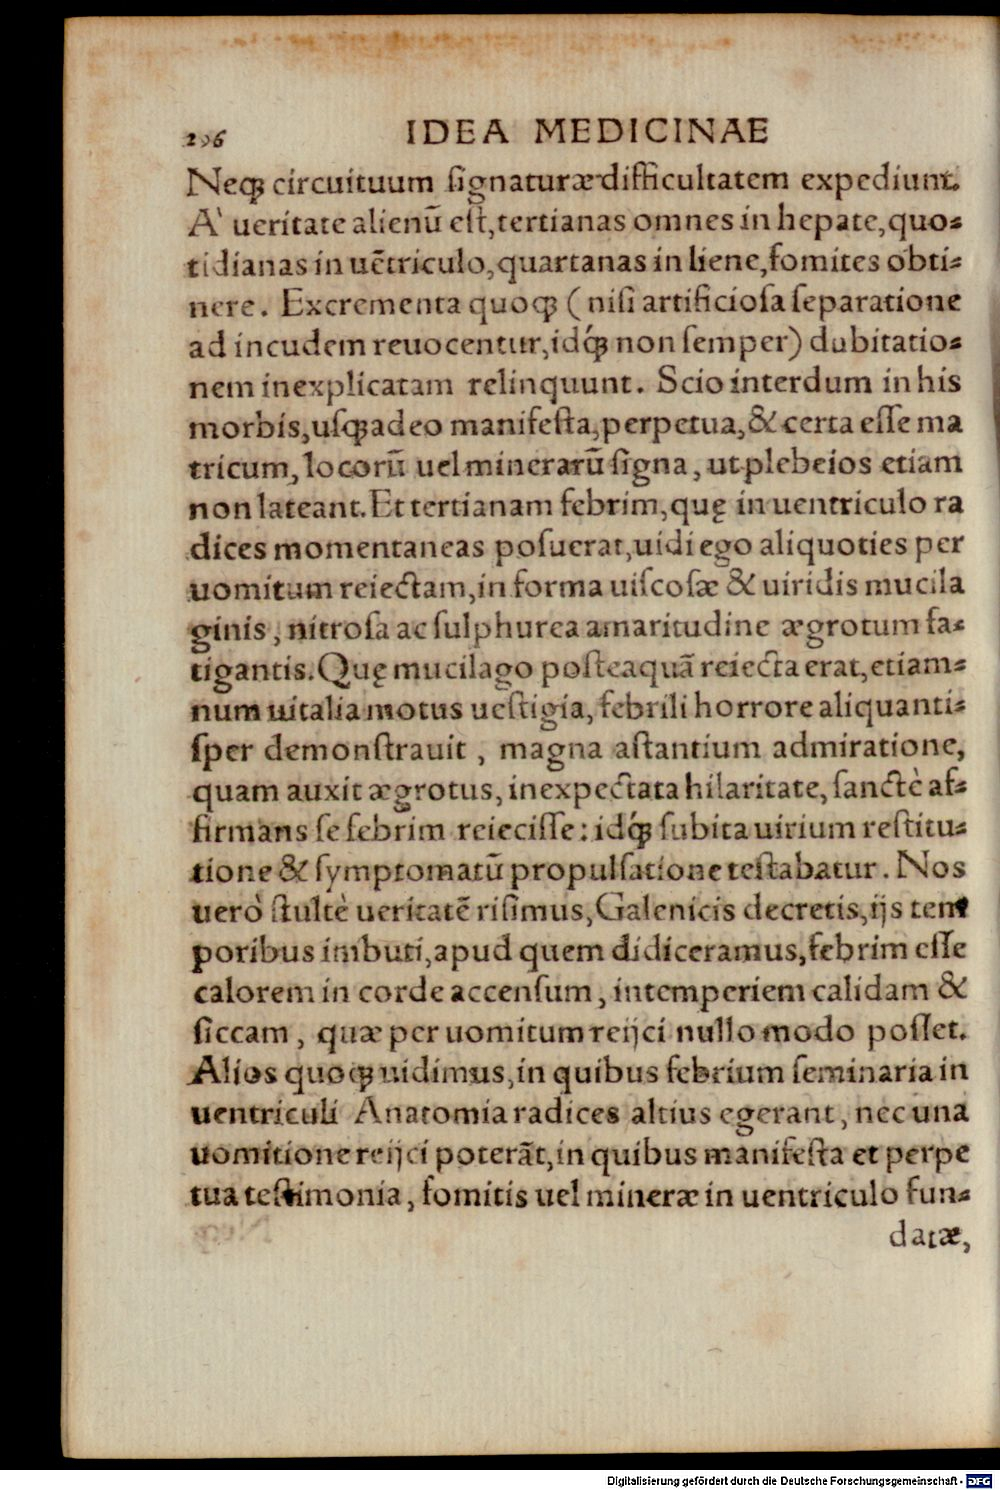 296 IDEA MEDICINAE
Neqꝫ circuituum ſignaturæ difficultatem expediunt.
A' ueritate alienū eſt, tertianas omnes in hepate, quo-
tidianas in uẽtriculo, quartanas in liene, fomites obti-
nere. Excrementa quoqꝫ (niſi artificioſa ſeparatione
ad incudem reuocentur, idq́ꝫ non ſemper) dubitatio-
nem inexplicatam relinquunt. Scio interdum in his
morbis, uſqꝫ adeo manifeſta, perpetua, & certa eſſe ma
tricum, locorũ uel minerarũ ſigna, ut plebeios etiam
non lateant. Et tertianam febrim, quę in uentriculo ra
dices momentaneas poſuerat, uidi ego aliquoties per
uomitum reiectam, in forma uiſcoſæ & uiridis mucila
ginis, nitroſa ac ſulphurea amaritudine ægrotum fa-
tigantis. Quę mucilago poſteaquã reiecta erat, etiam-
num uitalia motus ueſtigia, febrili horrore aliquanti-
ſper demonſtrauit, magna aſtantium admiratione,
quam auxit ægrotus, inexpectata hilaritate, ſanctè af-
firmans ſe febrim reieciſſe: idq́ꝫ ſubita uirium reſtitu-
tione & ſymptomatũ propulſatione teſtabatur. Nos
uerò ſtultè ueritatẽ riſimus, Galenicis decretis, ijs tem
poribus imbuti, apud quem didiceramus, febrim eſſe
calorem in corde accenſum, intemperiem calidam &
ſiccam, quæ per uomitum reijci nullo modo poſſet.
Alios quoqꝫ uidimus, in quibus febrium ſeminaria in
uentriculi Anatomia radices altius egerant, nec una
uomitione reijci poterãt, in quibus manifeſta et perpe
tua teſtimonia, fomitis uel mineræ in uentriculo fun-
datæ,
Digitalisierung gefördert durch die Deutsche Forschungsgemeinschaft - DFG